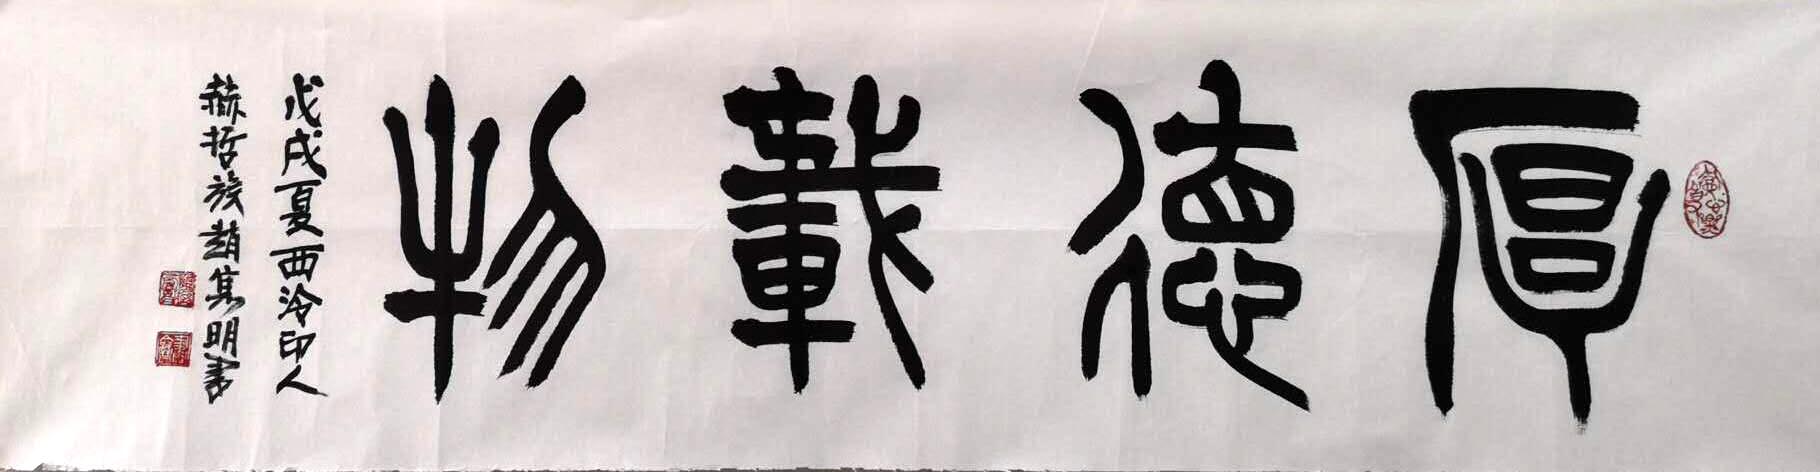 厚德載物
戊戌夏西泠印人
赫哲族趙隽明書